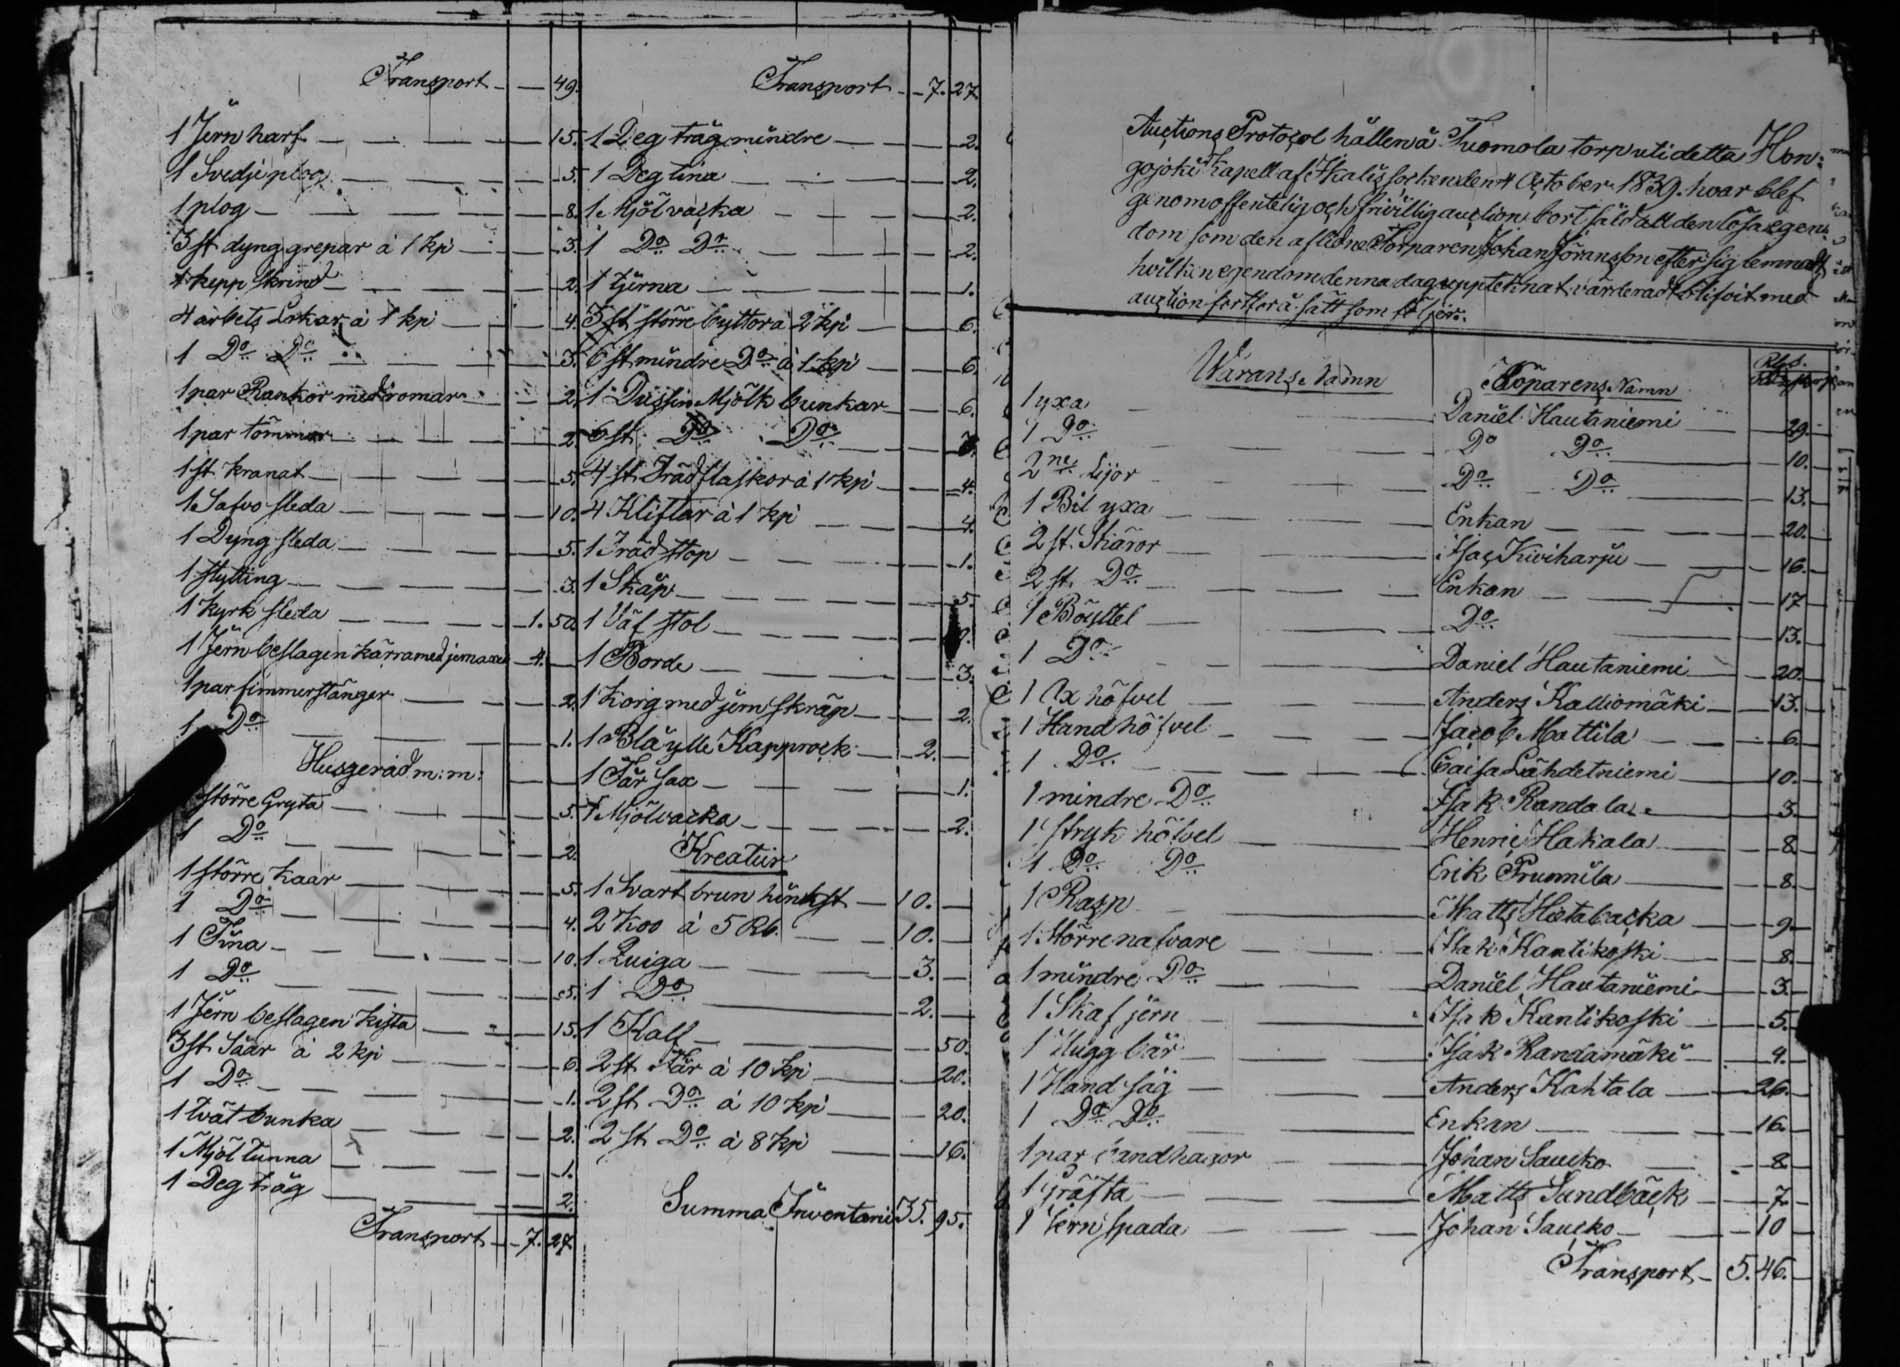 Transport 49.
1 Jern harf 15.
1 Svedje plog 5.
1 plog 8.
3 st dyng grepar à 1 kp 3.
1 kepp skrind 2.
4 arbets Lokar à 1 kp 4.
1 Do Do 3.
1 par Rankor med romar 2.
1 par tömmar 2.
1 st kranat 5.
1 Salvo sleda 10.
1 Dyng sleda 5.
1 stytting 3.
1 kyrk sleda 1. 50.
1 Jern beslagen kärra med jernaxel 4.
1 par fimmerstänger 2.
1 Do 1.
Husgeråd m: m:
större Gryta 5.
1 Do 2.
1 större kaar 5.
1 Do 4.
1 Tina 10.
1 Do 5.
1 Jern beslagen kista 15.
3 st Såar à 2 kp 6.
1 Do 1.
1 tvät bunka 2.
1 Mjöl tunna 1.
1 Deg tråg 2.
Transport 7. 27.
Transport 7. 27.
1 Deg tråg mindre 2.
1 Deg tina 2.
1 Mjöl vacka 2.
1 Do Do 2.
1 tjerna 1.
3 st större byttor à 2 kp 6.
6 st mindre Do à 1 kp 6.
1 Dussin Mjölk bunkar 6.
6 st Do Do
4 st Träd flaskor à 1 kp 4.
4 Kliftar à 1 kp 4.
1 Träd stop 1.
1 Skåp 5.
1 Väf stol
1 Borde 3.
1 korg med jern skräp 2.
1 Blå ylle Kapprock 2.
1 Får sax 1.
1 Mjölvacka 2.
Kreatur
1 Svart brun hinkst 10.
2 koo à 5 Rb. 10.
1 Quiga 3.
1 Do 2.
1 Kalf 50.
2 st Får à 10 kp 20.
2 st Do à 10 kp 20.
2 st Do à 8 kp 16.
Summa Inventarii 35. 95.
Auctions Protocol hållen å Tuomola torp uti detta Hon:
gojoki Kapell af Ikalis socken den 4 October 1839. hvar blef
genom offentelig och frivillig auction bort såld all den lösa egen
dom som den aflidne Torparen Johan Göransson efter sig lemnadt
hvilken egendom denna dag upptecknat värderadt blifvit med
auction fortfor å sätt som följer:
Warans Namn Köparens Namn
1 yxa Daniel Hautaniemi 29.
1 Do Do Do 10.
2ne Lijor Do Do 13.
1 Bil yxa Enkan 20.
2 st. Skäror Isac Kiviharju 16.
2 st. Do Enkan 17
1 Böyttel Do 13.
1 Do Daniel Hautaniemi 20.
1 Ox höfvel Anders Kalliomäki 13.
1 Hand höfvel Jacob Mattila 6.
1 Do Caisa Lähdetniemi 10.
1 mindre Do Isak Randala 3.
1 stryk höfvel Henric Hakala 8.
1 Do Do Erik Prunnila 8.
1 Rasp Matts Hietabacka 9.
1 större nafvare Isak Kantikoski 8.
1 mindre Do Daniel Hautaniemi 3.
1 Skaf jern Isak Kantikoski 5.
1 Hugg bär Isak Randamäki 4.
1 Hand såg Anders Kahtala 26.
1 Do Do Enkan 16.
1 par bandhakor Johan Saucko 8.
1 Gräfta Matts Sandbäck 7.
1 Jern spada Johan Saucko 10
Transport 5. 46.